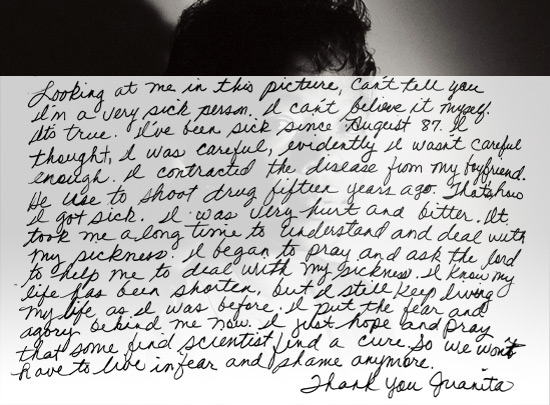 Looking at me in this picture, can't tell you
I'm a very sick person. I can't believe it myself.
It's true. I've been sick since August 87. I
thought, I was careful, evidently I wasn't careful
enough. I contracted the disease from my boyfriend.
He use to shoot drug fifteen years ago. That's how
I got sick. I was very hurt and bitter. It
took me a long time to understand and deal with
my sickness. I began to pray and ask the lord
to help me to deal with my sickness. I know my
life has been shorten, but I still keep living
my life as I was before. I put the fear and
agory behind me now. I just hope and pray
that some find scientist find a cure. So we won't
have to live in fear and shame anymore.
Thank You Juanita